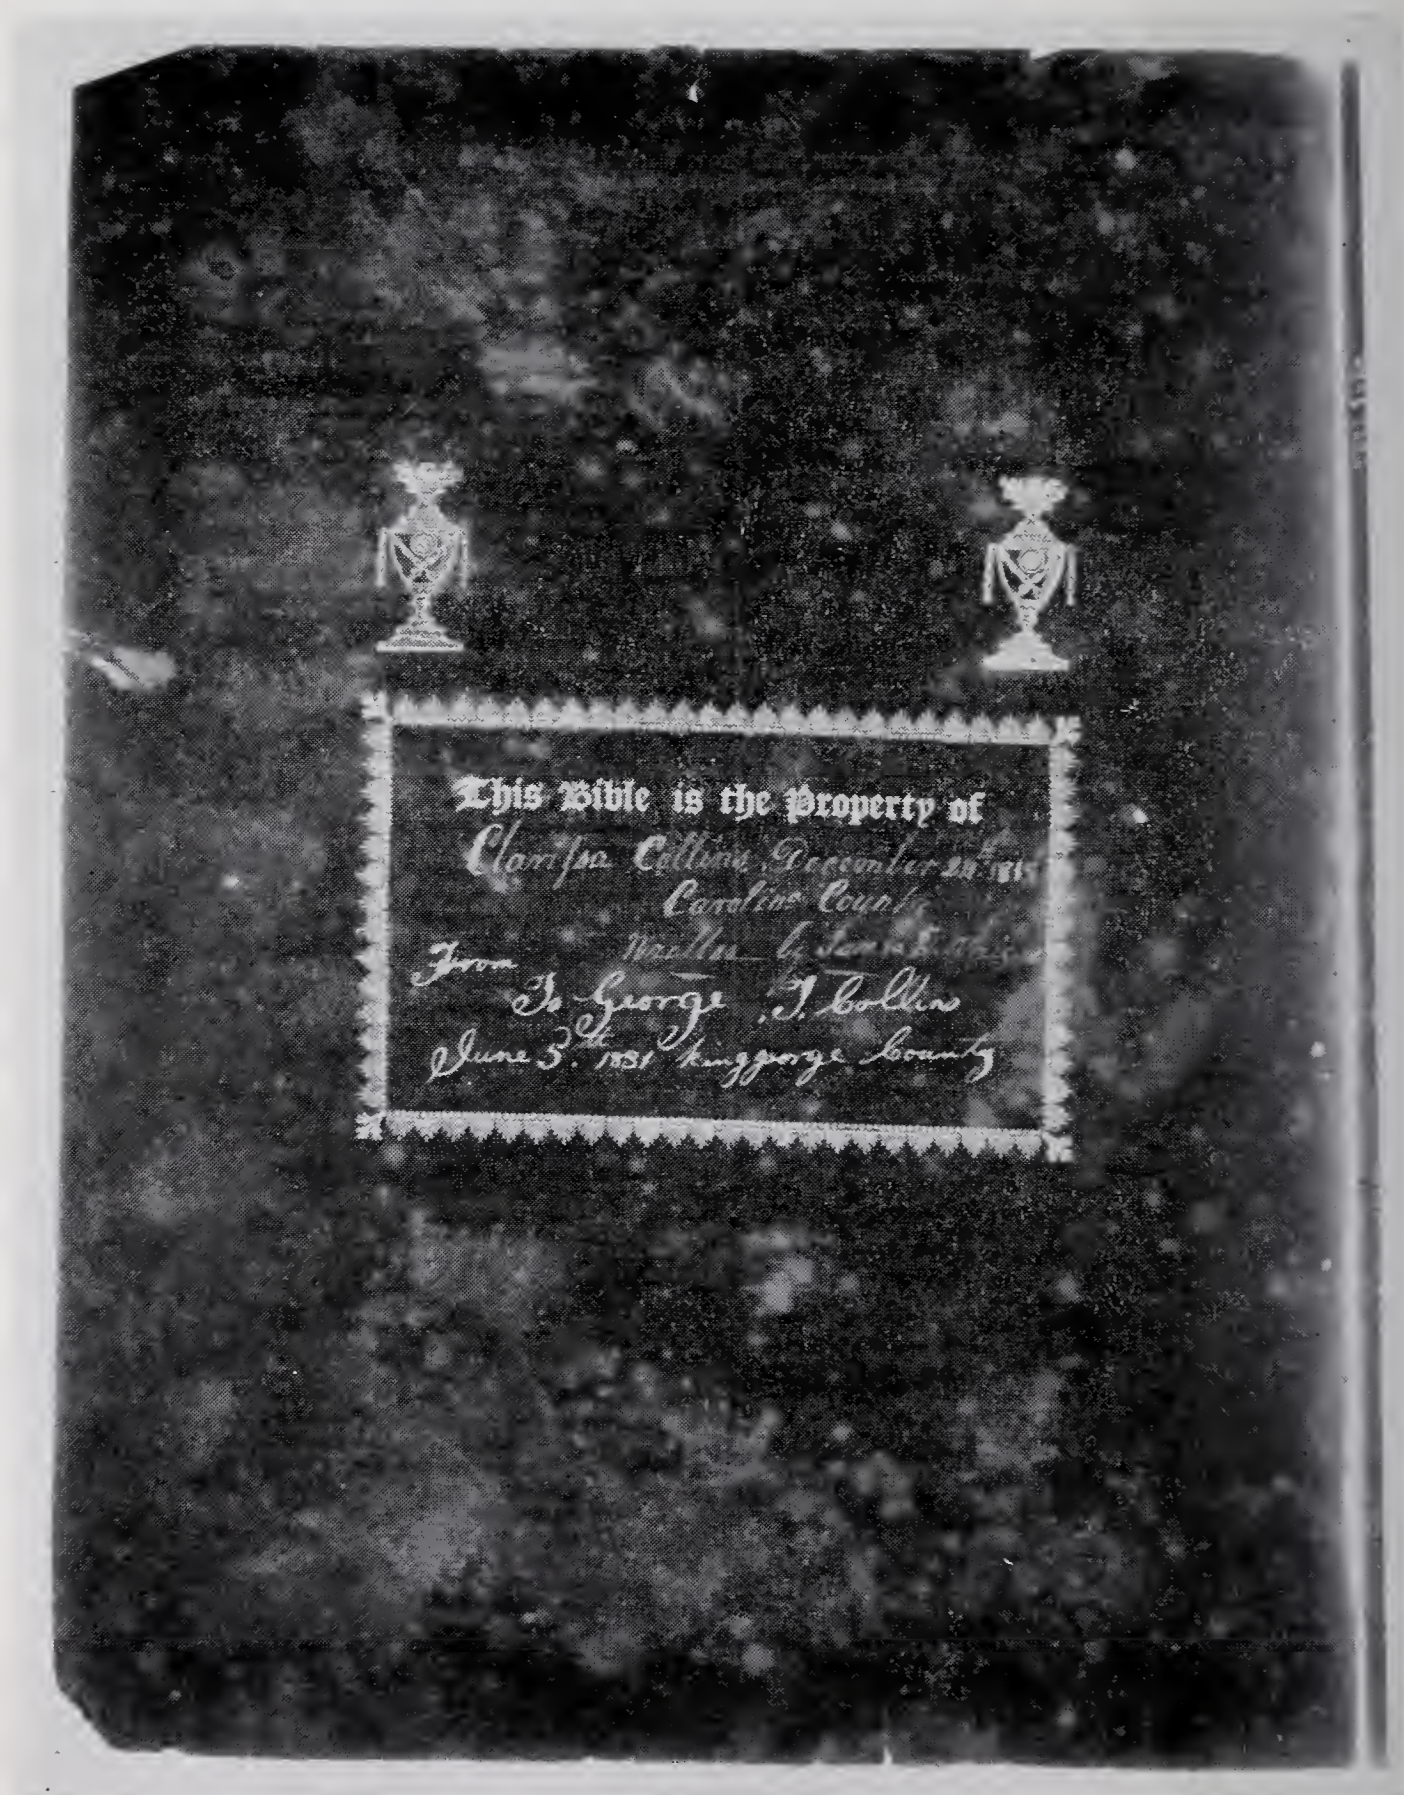 This Bible is the Property of
Clarissa Collins, December 24th
Caroline County
Written by James
From
To George T. Collins
June 3th 1851 king george County